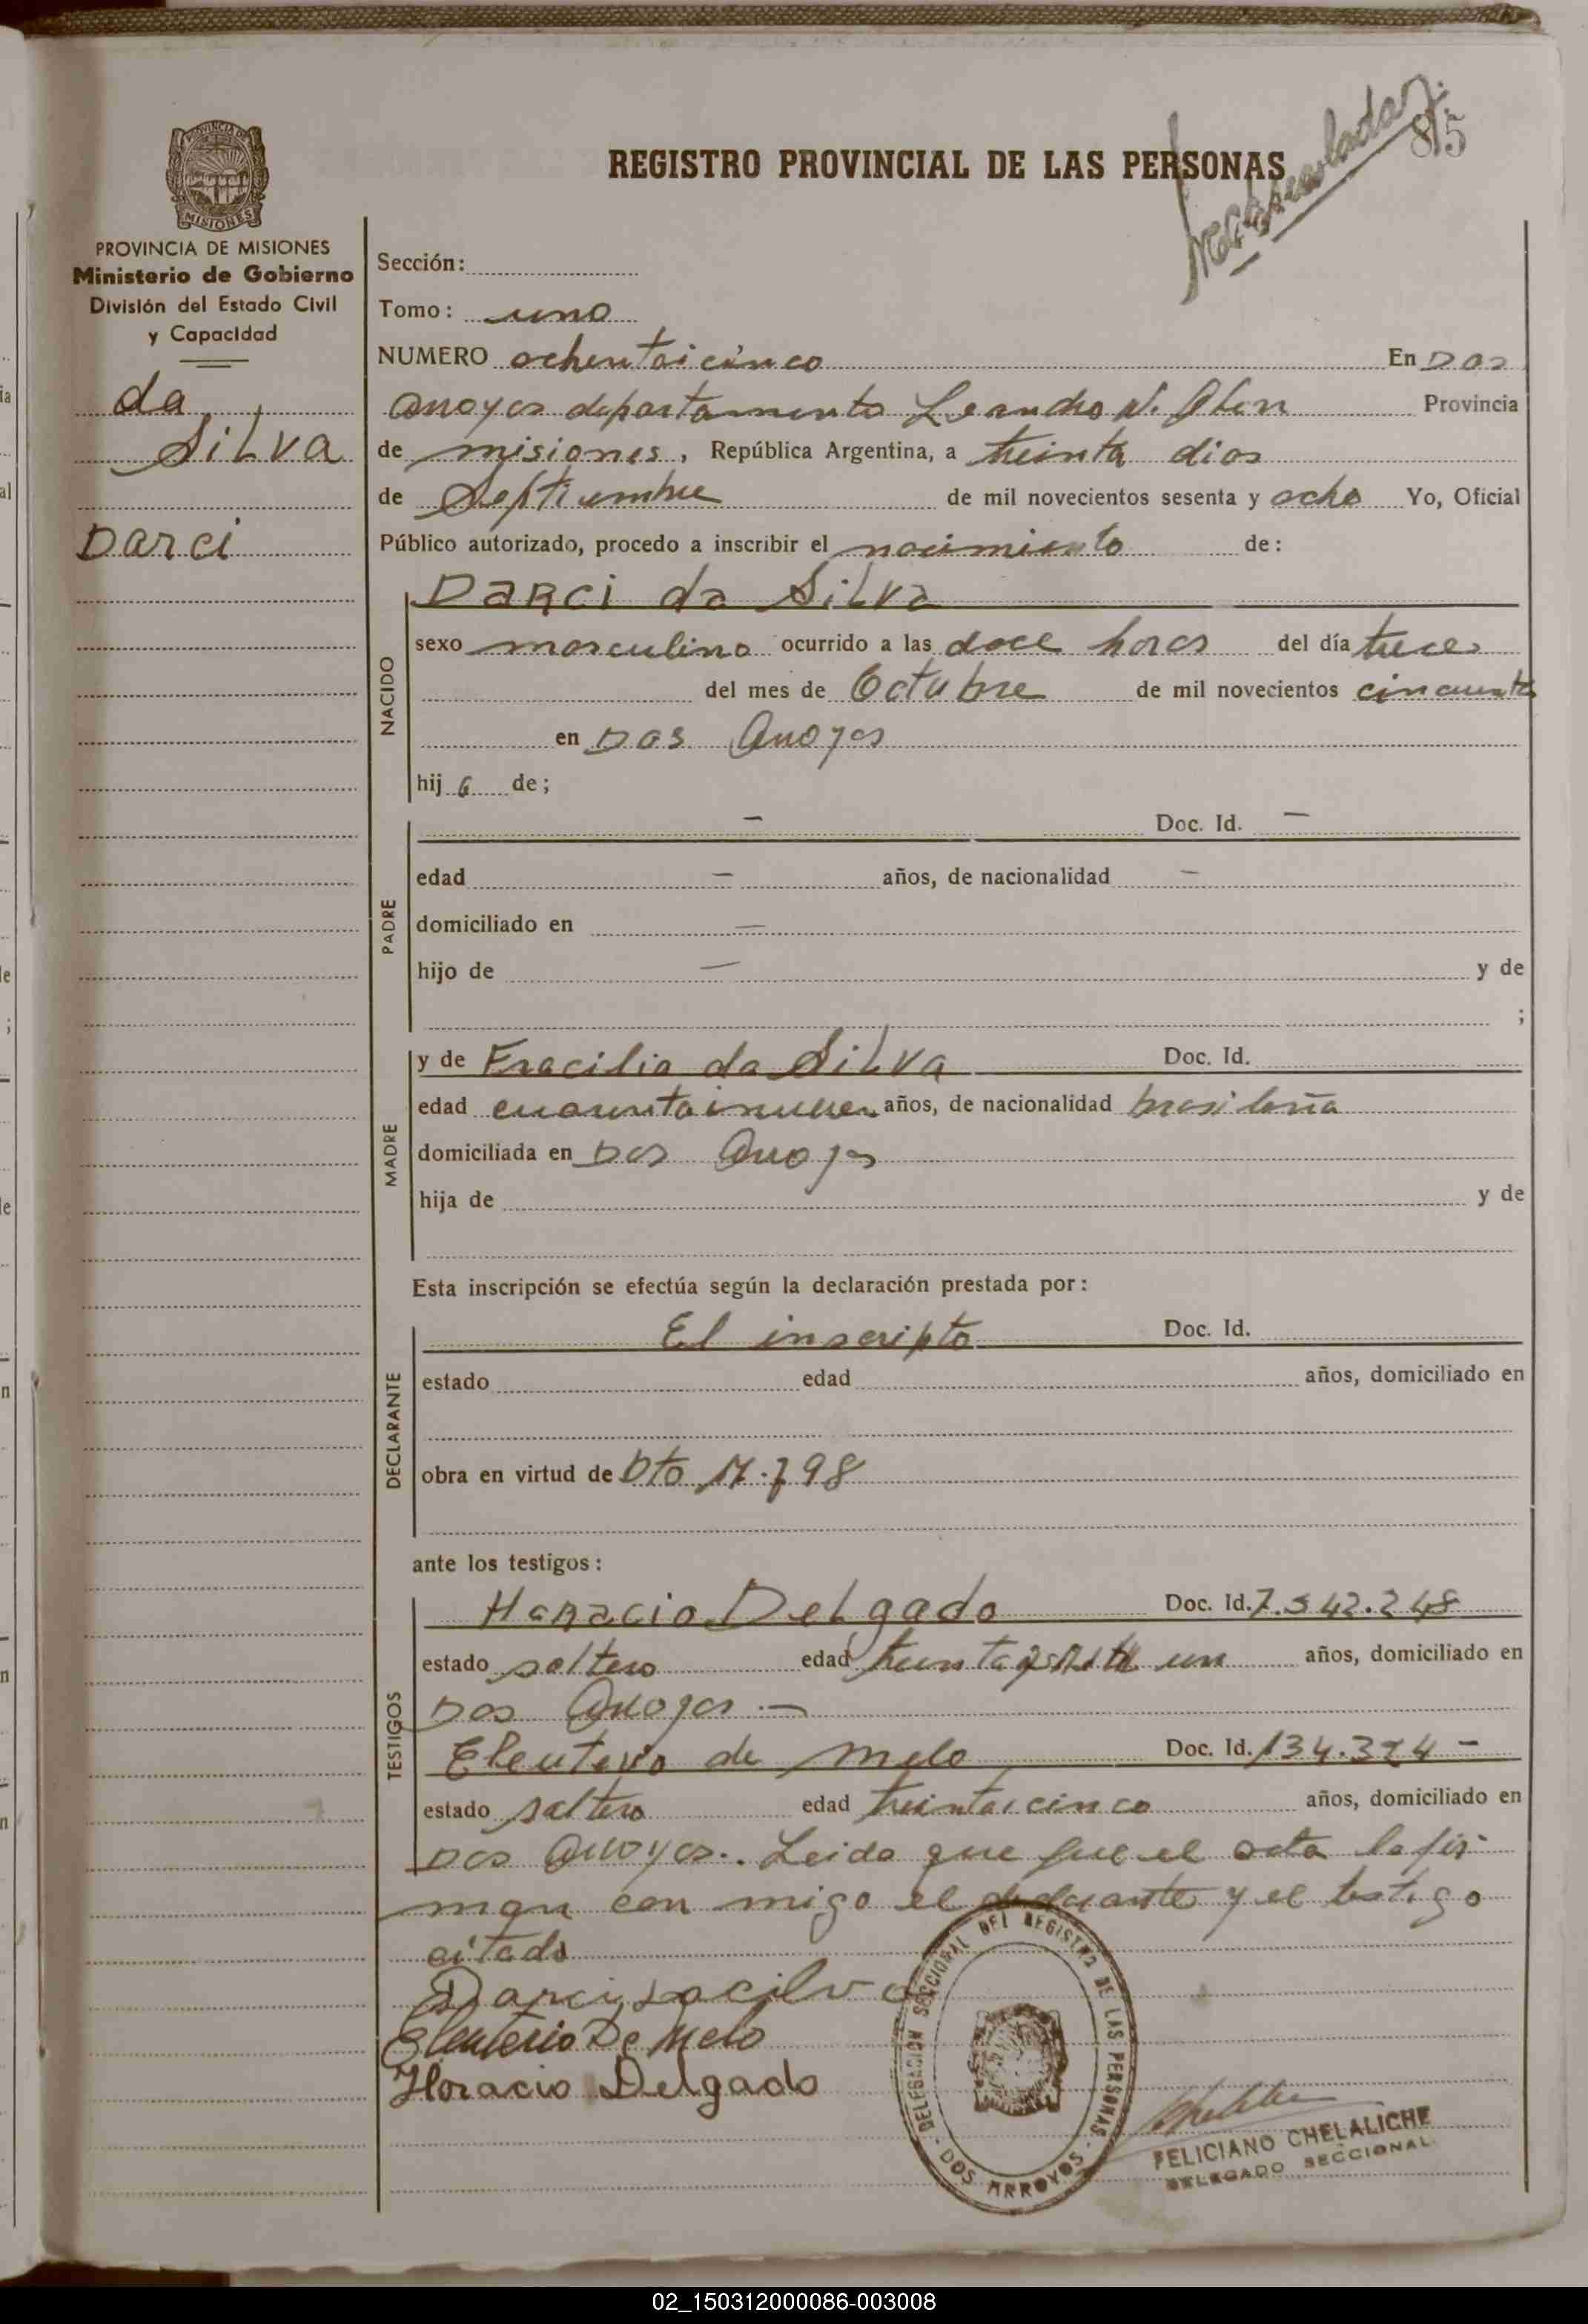 85
REGISTRO PROVINCIAL DE LAS PERSONAS
PROVINCIA DE
MISIONES
PROVINCIA DE MISIONES
Ministerio de Gobierno
División del Estado Civil
y Capacidad
da
Silva
Darci
Sección:
Tomo: uno
NUMERO ochentaicinco En Dos
Arroyos departamento Leandro N. Alen Provincia
de misiones, República Argentina, a treinta dias
de Septiembre de mil novecientos sesenta y ocho Yo, Oficial
Público autorizado, procedo a inscribir el nacimiento de:
NACIDO
Darci da Silva
sexo masculino ocurrido a las doce horas del día trece
del mes de Octubre de mil novecientos cincuenta
en Dos Arroyos
hij o de;
PADRE
— Doc. Id. —
edad — años, de nacionalidad —
domiciliado en —
hijo de — y de
;
MADRE
y de Eracilia da Silva Doc. Id.
edad cuarentainueve años, de nacionalidad brasileña
domiciliada en Dos Arroyos
hija de y de
Esta inscripción se efectúa según la declaración prestada por:
DECLARANTE
El inscripto Doc. Id.
estado edad años, domiciliado en
obra en virtud de Dto 17.798
ante los testigos:
TESTIGOS
Horacio Delgado Doc. Id. 7.542.248
estado soltero edad treinta un años, domiciliado en
Dos Arroyos —
Eleuterio de melo Doc. Id. 134.324 -
estado soltero edad treintaicinco años, domiciliado en
Dos Arroyos.. Leida que fue el acta la fir
man con migo el declarante y el testigo
citado
Darci da cilva
Eleuterio De Melo
Horacio Delgado
DELEGACION SECCIONAL DEL REGISTRO DE LAS PERSONAS
- DOS ARROYOS -
FELICIANO CHELALICHE
DELEGADO SECCIONAL
02_150312000086-003008